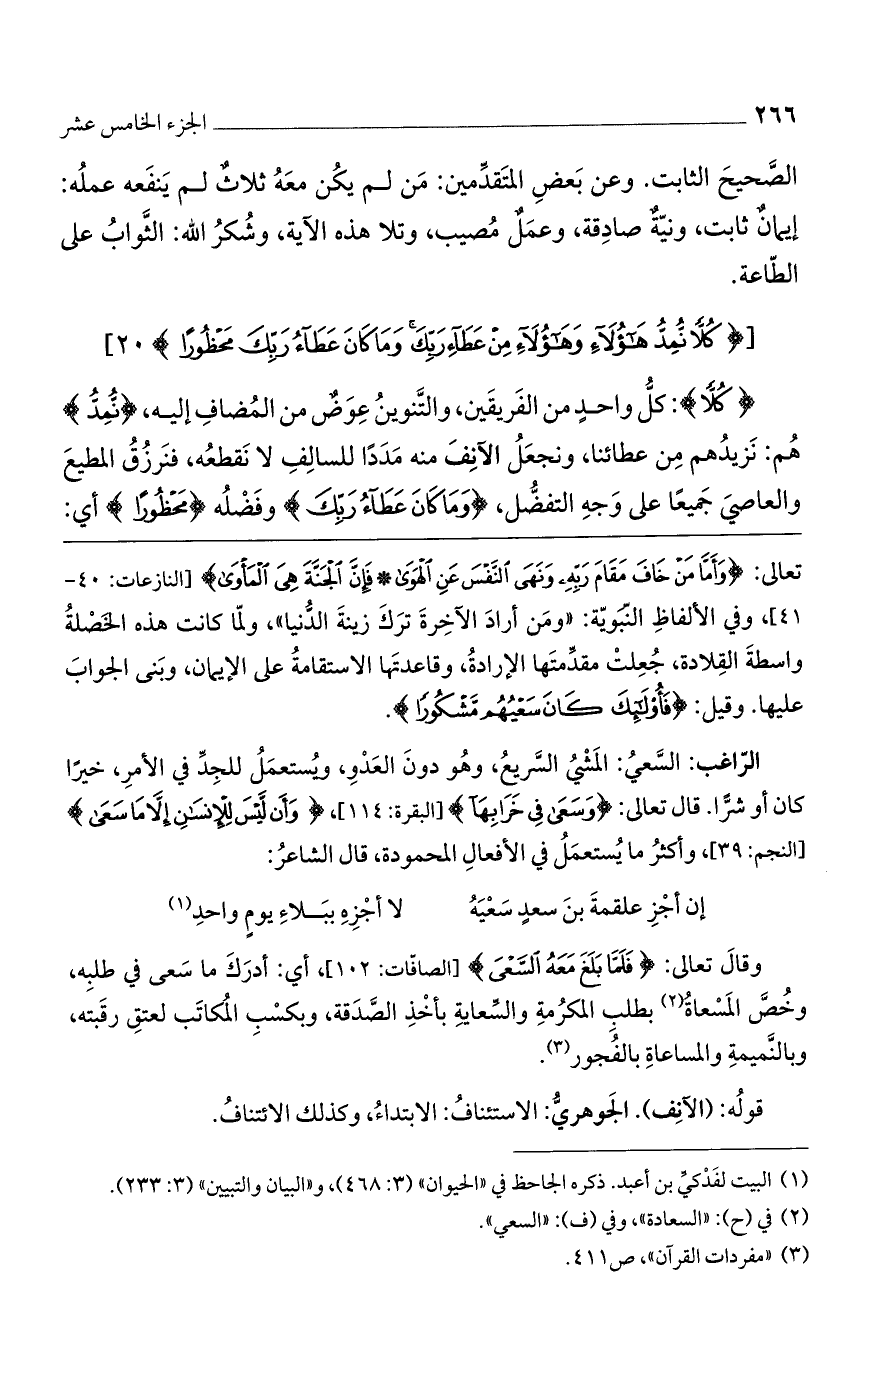 ٢٦٦ ـــــــــــــــــــــــــــــــ الجزء الخامس عشر
الصَّحيحَ الثابت. وعن بَعضِ المتَقدِّمين: مَن لـم يكُن معَهُ ثلاثٌ لـم يَنفَعه عملُه:
إيمانٌ ثابت، ونيّةٌ صادِقة، وعمَلٌ مُصيب، وتلا هذه الآية، وشُكرُ الله: الثَّوابُ على
الطّاعة.
[﴿ كُلًّا نُّمِدُّ هَٰٓؤُلَآءِ وَهَٰٓؤُلَآءِ مِنْ عَطَآءِ رَبِّكَ ۚ وَمَا كَانَ عَطَآءُ رَبِّكَ مَحْظُورًا ﴾ ٢٠]
﴿ كُلًّا ﴾: كلُّ واحـدٍ من الفَريقَين، والتَّنوينُ عِوَضٌ من المُضافِ إليـه، ﴿نُّمِدُّ ﴾
هُم: نَزيدُهم مِن عطائنا، ونجعَلُ الآنِفَ منه مَدَدًا للسالِفِ لا نَقطعُه، فنَرزُقُ المطيعَ
والعاصيَ جَميعًا على وَجهِ التفضُّل، ﴿وَمَا كَانَ عَطَآءُ رَبِّكَ ﴾ وفَضْلُه ﴿مَحْظُورًا ﴾ أي:
تعالى: ﴿وَأَمَّا مَنْ خَافَ مَقَامَ رَبِّهِۦ وَنَهَى ٱلنَّفْسَ عَنِ ٱلْهَوَىٰ * فَإِنَّ ٱلْجَنَّةَ هِىَ ٱلْمَأْوَىٰ﴾ [النازعات: ٤٠-
٤١]، وفي الألفاظِ النّبَويّة: «ومَن أرادَ الآخِرةَ ترَكَ زينةَ الدُّنيا»، ولمّا كانت هذه الخَصْلةُ
واسطةَ القِلادة، جُعِلتْ مقدِّمتَها الإرادةُ، وقاعدتَها الاستقامةُ على الإيمان، وبَنى الجوابَ
عليها. وقيل: ﴿فَأُوْلَٰٓئِكَ كَانَ سَعْيُهُم مَّشْكُورًا ﴾.
الرّاغب: السَّعيُ: المَشْيُ السَّريعُ، وهُو دونَ العَدْوِ، ويُستعمَلُ للجِدِّ في الأمرِ، خيرًا
كان أو شرًّا. قال تعالى: ﴿وَسَعَىٰ فِى خَرَابِهَآ ﴾ [البقرة: ١١٤]، ﴿ وَأَن لَّيْسَ لِلْإِنسَٰنِ إِلَّا مَا سَعَىٰ ﴾
[النجم: ٣٩]، وأكثرُ ما يُستعمَلُ في الأفعالِ المحمودة، قال الشاعرُ:
إن أجْزِ علقمةَ بنَ سعدٍ سَعْيَهُ لا أجْزِهِ ببَـلاءِ يومٍ واحدِ(١)
وقالَ تعالى: ﴿ فَلَمَّا بَلَغَ مَعَهُ ٱلسَّعْىَ ﴾ [الصافّات: ١٠٢]، أي: أدرَكَ ما سَعى في طلبِه،
وخُصَّ المَسْعاةُ(٢) بطلبِ المكرُمةِ والسِّعايةِ بأخْذِ الصَّدَقة، وبكسْبِ المُكاتَب لعتقِ رقَبته،
وبالنَّميمةِ والمساعاةِ بالفُجور(٣).
قولُه: (الآنِف). الجَوهريُّ: الاستئنافُ: الابتداءُ، وكذلك الائتنافُ.
(١) البيت لفَدْكيِّ بن أعبد. ذكره الجاحظ في «الحيوان» (٣: ٤٦٨)، و«البيان والتبيين» (٣: ٢٣٣).
(٢) في (ح): «السعادة»، وفي (ف): «السعي».
(٣) «مفردات القرآن»، ص٤١١.